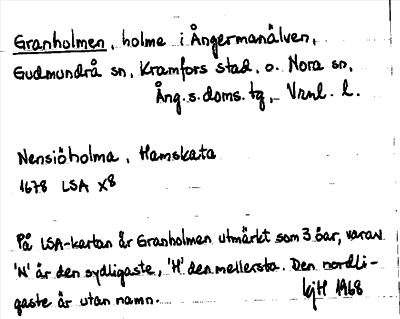 Granholmen, holme i Ångermanälven,
Gudmundrå sn, Kramfors stad, o. Nora sn,
Ång.s.doms.tg, Vrnl. l.
Nensiöholma, Hamskata
1678 LSA X8
På LSA-kartan är Granholmen utmärkt som 3 öar, varav
'N' är den sydligaste, 'H' den mellersta. Den nordli-
gaste är utan namn.
LjH 1968